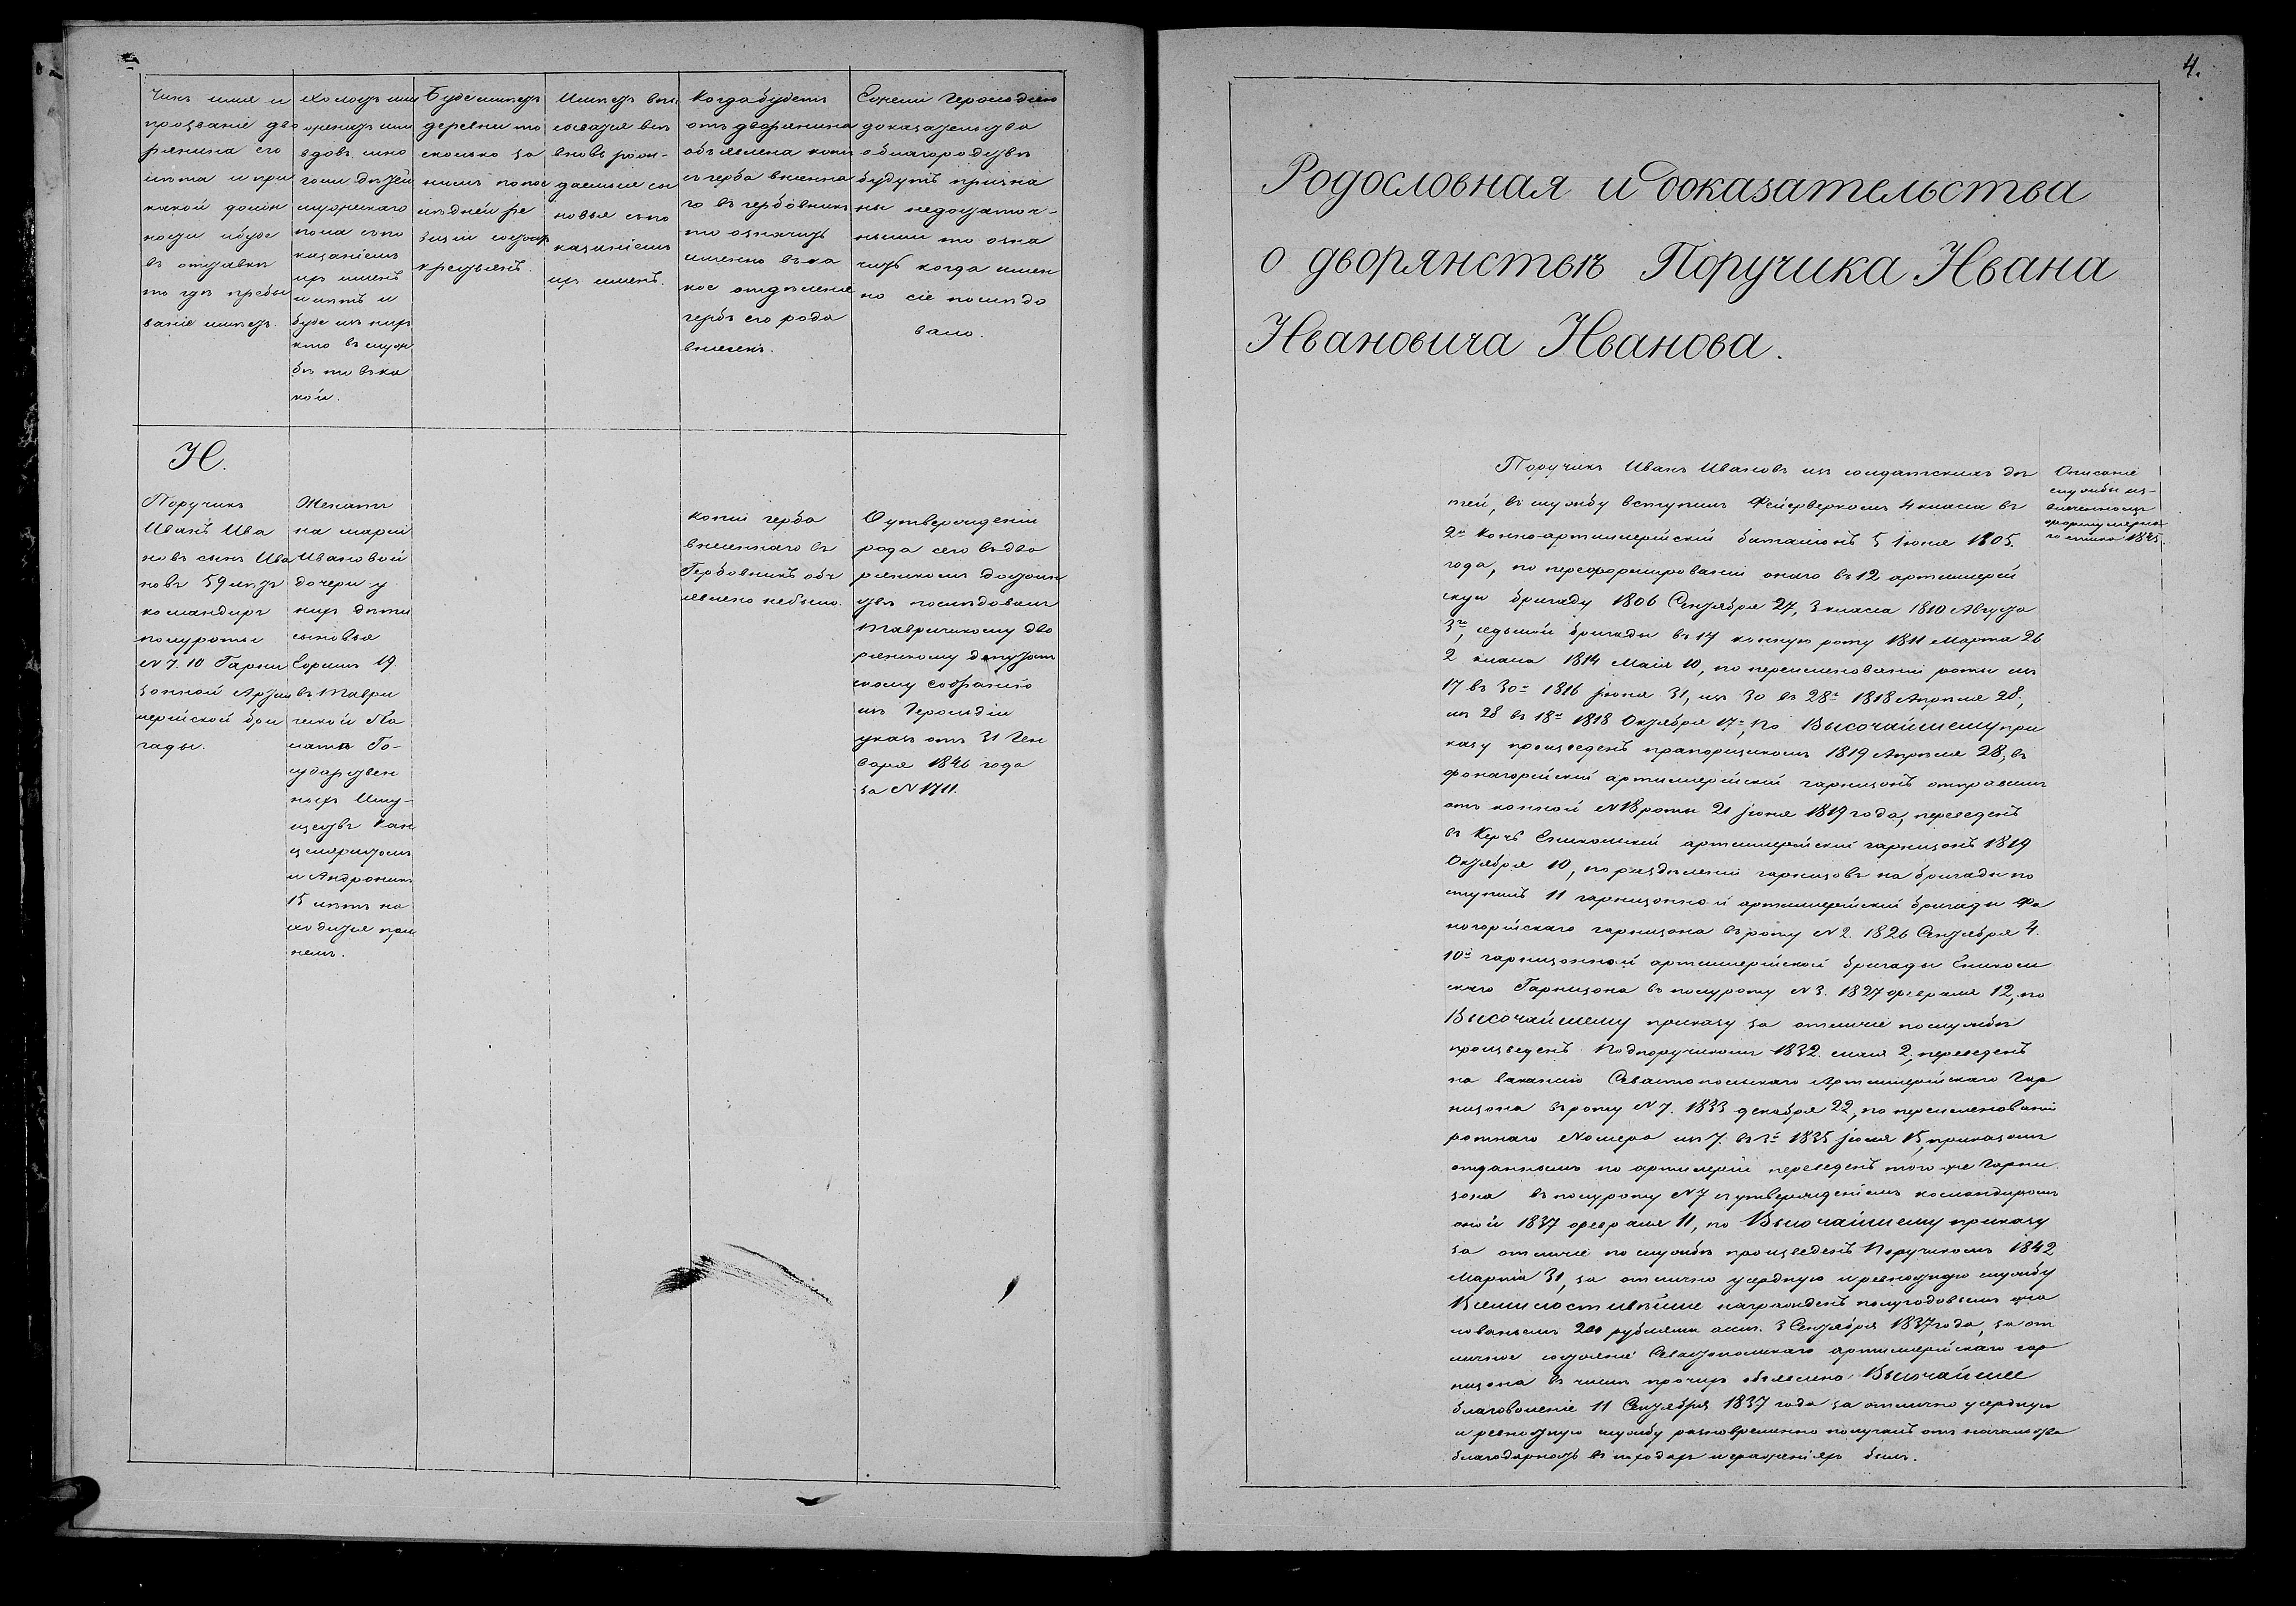 4.
Чинъ имя и
прозваніе дво
рянина его
лѣта и при
какой долж
ности и буде
въ отставкѣ
то гдѣ пребы
ваніе имѣетъ.
Холостъ или
женатъ или
вдовъ, мно
голи дѣтей
мужескаго
пола съ по
казаніемъ
ихъ именъ
и лѣтъ и
буде изъ нихъ
кто въ служ
бѣ то въ ка
кой.
Буде имѣетъ
деревни то
сколько за
нимъ по пос
лѣдней ре
визіи состоитъ
крестьянъ.
Имѣетъ впи
вновь рож-
даемые сы
новья съ по
казаніемъ
ихъ именъ.
Когда будетъ
отъ дворянина
объявлена копія
съ герба внесенна
го въ гербовникъ
то означить
именно въ ка
кое отдѣленіе
гербъ его рода
внесенъ.
Герольдіею
доказательства
о благородствѣ
будутъ призна
ны недостаточ-
ными то озна
чить когда имен
но сіе послѣдо
вало.
И.
Поручикъ
Иванъ Ива
новъ сынъ Ива
новъ 59 лѣтъ
командиръ
полуроты
N 7. 10 Гарни
зонной Артил
лерійской бри
гады.
Женатъ
на марьи
Ивановой
дочери у
нихъ дѣти
сыновья
19.
въ Таври
ческой Па
латѣ Го-
сударствен
ныхъ Иму-
ществъ Кан
целяристомъ
и Андроникъ
15 лѣтъ на
ходится при
немъ.
копіи герба
внесеннаго въ
Гербовникъ объ
явлено не было.
О утвержденіи
рода сего въ дво
рянскомъ достоин
ствѣ послѣдовалъ
Таврическому дво
рянскому депутат
скому собранію
изъ Герольдіи
указъ отъ 31 Ген
варя 1846 года
за N 1711.
Родословная и доказательства
о дворянствѣ Поручика Ивана
Ивановича Иванова.
Описаніе
службы из-
влеченное изъ
формулярна
го списка 1845.
Поручикъ Иванъ Ивановъ изъ солдатскихъ дѣ
тей, въ службу вступилъ Фейерверкомъ 4 класса въ
2й Конно-артиллерійскій баталіонъ 5 Іюня 1805.
года, по переформированіи онаго въ 12 артиллерій
скую бригаду 1806 Сентября 27, 3 класса 1810 Августа
3го, седьмой бригады въ 17 конную роту 1811 Марта 26
2 класа 1814 Маія 10, по переименованіи роты изъ
17 въ 30ю 1816 іюня 31, изъ 30 въ 28ю 1818 Апрѣля 28,
изъ 28 въ 18ю 1818 Октября 17го, По Высочайшему при
казу произведенъ прапорщикомъ 1819 Апрѣля 28, въ
фанагорійскій артиллерійскій гарнизонъ отправленъ
отъ конной N 18 роты 21 іюня 1819 года, переведенъ
въ Керчь Еникольскій артиллерійскій гарнизонъ 1819
Октября 10, по раздѣленіи гарнизовъ на бригады по
ступилъ 11 гарнизонной артиллерійской бригады Фа
ногорійскаго гарнизона въ роту N 2. 1826 Сентября 4.
10й гарнизонной артиллерійской бригады Ениколь
скаго Гарнизона въ полуроту N 3. 1827 февраля 12, по
Высочайшему приказу за отличіе по службѣ
произведенъ Подпоручикомъ 1832. маія 2, переведенъ
на ваканcію Севастопольскаго Артиллерійскаго Гар
низона въ роту N 7. 1833 декабря 22, по переименованіи
ротнаго Номера изъ 7. въ 3й 1835 іюля 15, приказомъ
отданнымъ по артилеріи переведенъ того же Гарни
зона въ полуроту N 7 съ утвержденіемъ командиромъ
оной 1837 февраля 11, по Высочайшему приказу
за отличіе по службѣ произведенъ Поручикомъ 1842
Мартіа 31, за отлично усердную и ревностную службу
Всемилостивѣйше награжденъ полугодовымъ жа
лованьемъ 200 рублями асиг. 3 Сентября 1837 года, за от
личное состояніе Севастопольскаго артиллерійскаго гар
низона въ числѣ прочихъ объявлено Высочайшее
благоволеніе 11 Сентября 1837 года за отлично усердную
и ревностную службу разновременно получалъ отъ начальства
благодарность въ походахъ и сраженіяхъ былъ.